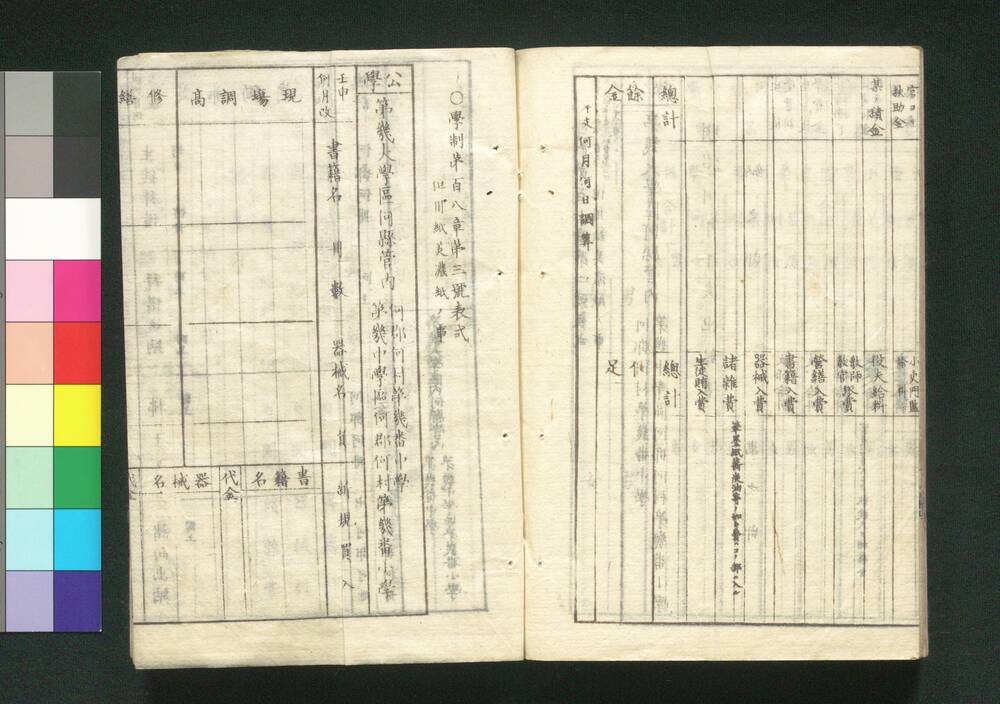 扶助金
積金
總計
餘金
干支何月何日調算
小吏門監
給料
役夫給料
教師教官入費
營繕入費
書籍入費
器械入費
諸雜費
筆墨紙薪炭油等ノ如キ費ハコノ部ニ入ル
生徒賄入費
總計
不足
○學制第百八章第三號表式
但用紙美濃紙ノ事
公學
第幾大學區何縣管內
何郡何村第幾番小學
第幾中學區何郡何村第幾番小學
壬申
何月改
書籍名
冊數
器械名
員
現買入
現場調高
修繕
書籍名
代金
器械名
代金